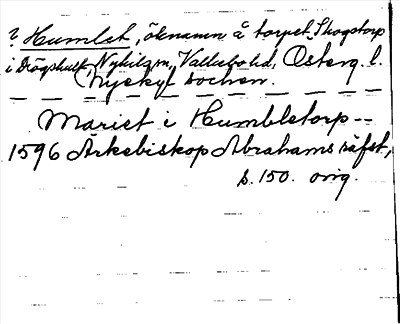 ? Humlet, öknamn å torpet Skogstorp
i Högshult, Nyhilzm, Vallebohd, Österg. l.
Nyckyl socken.
Mariet i Humbletorp --
1596 Arkebiskop Abrahams räfst,
s. 150. orig.